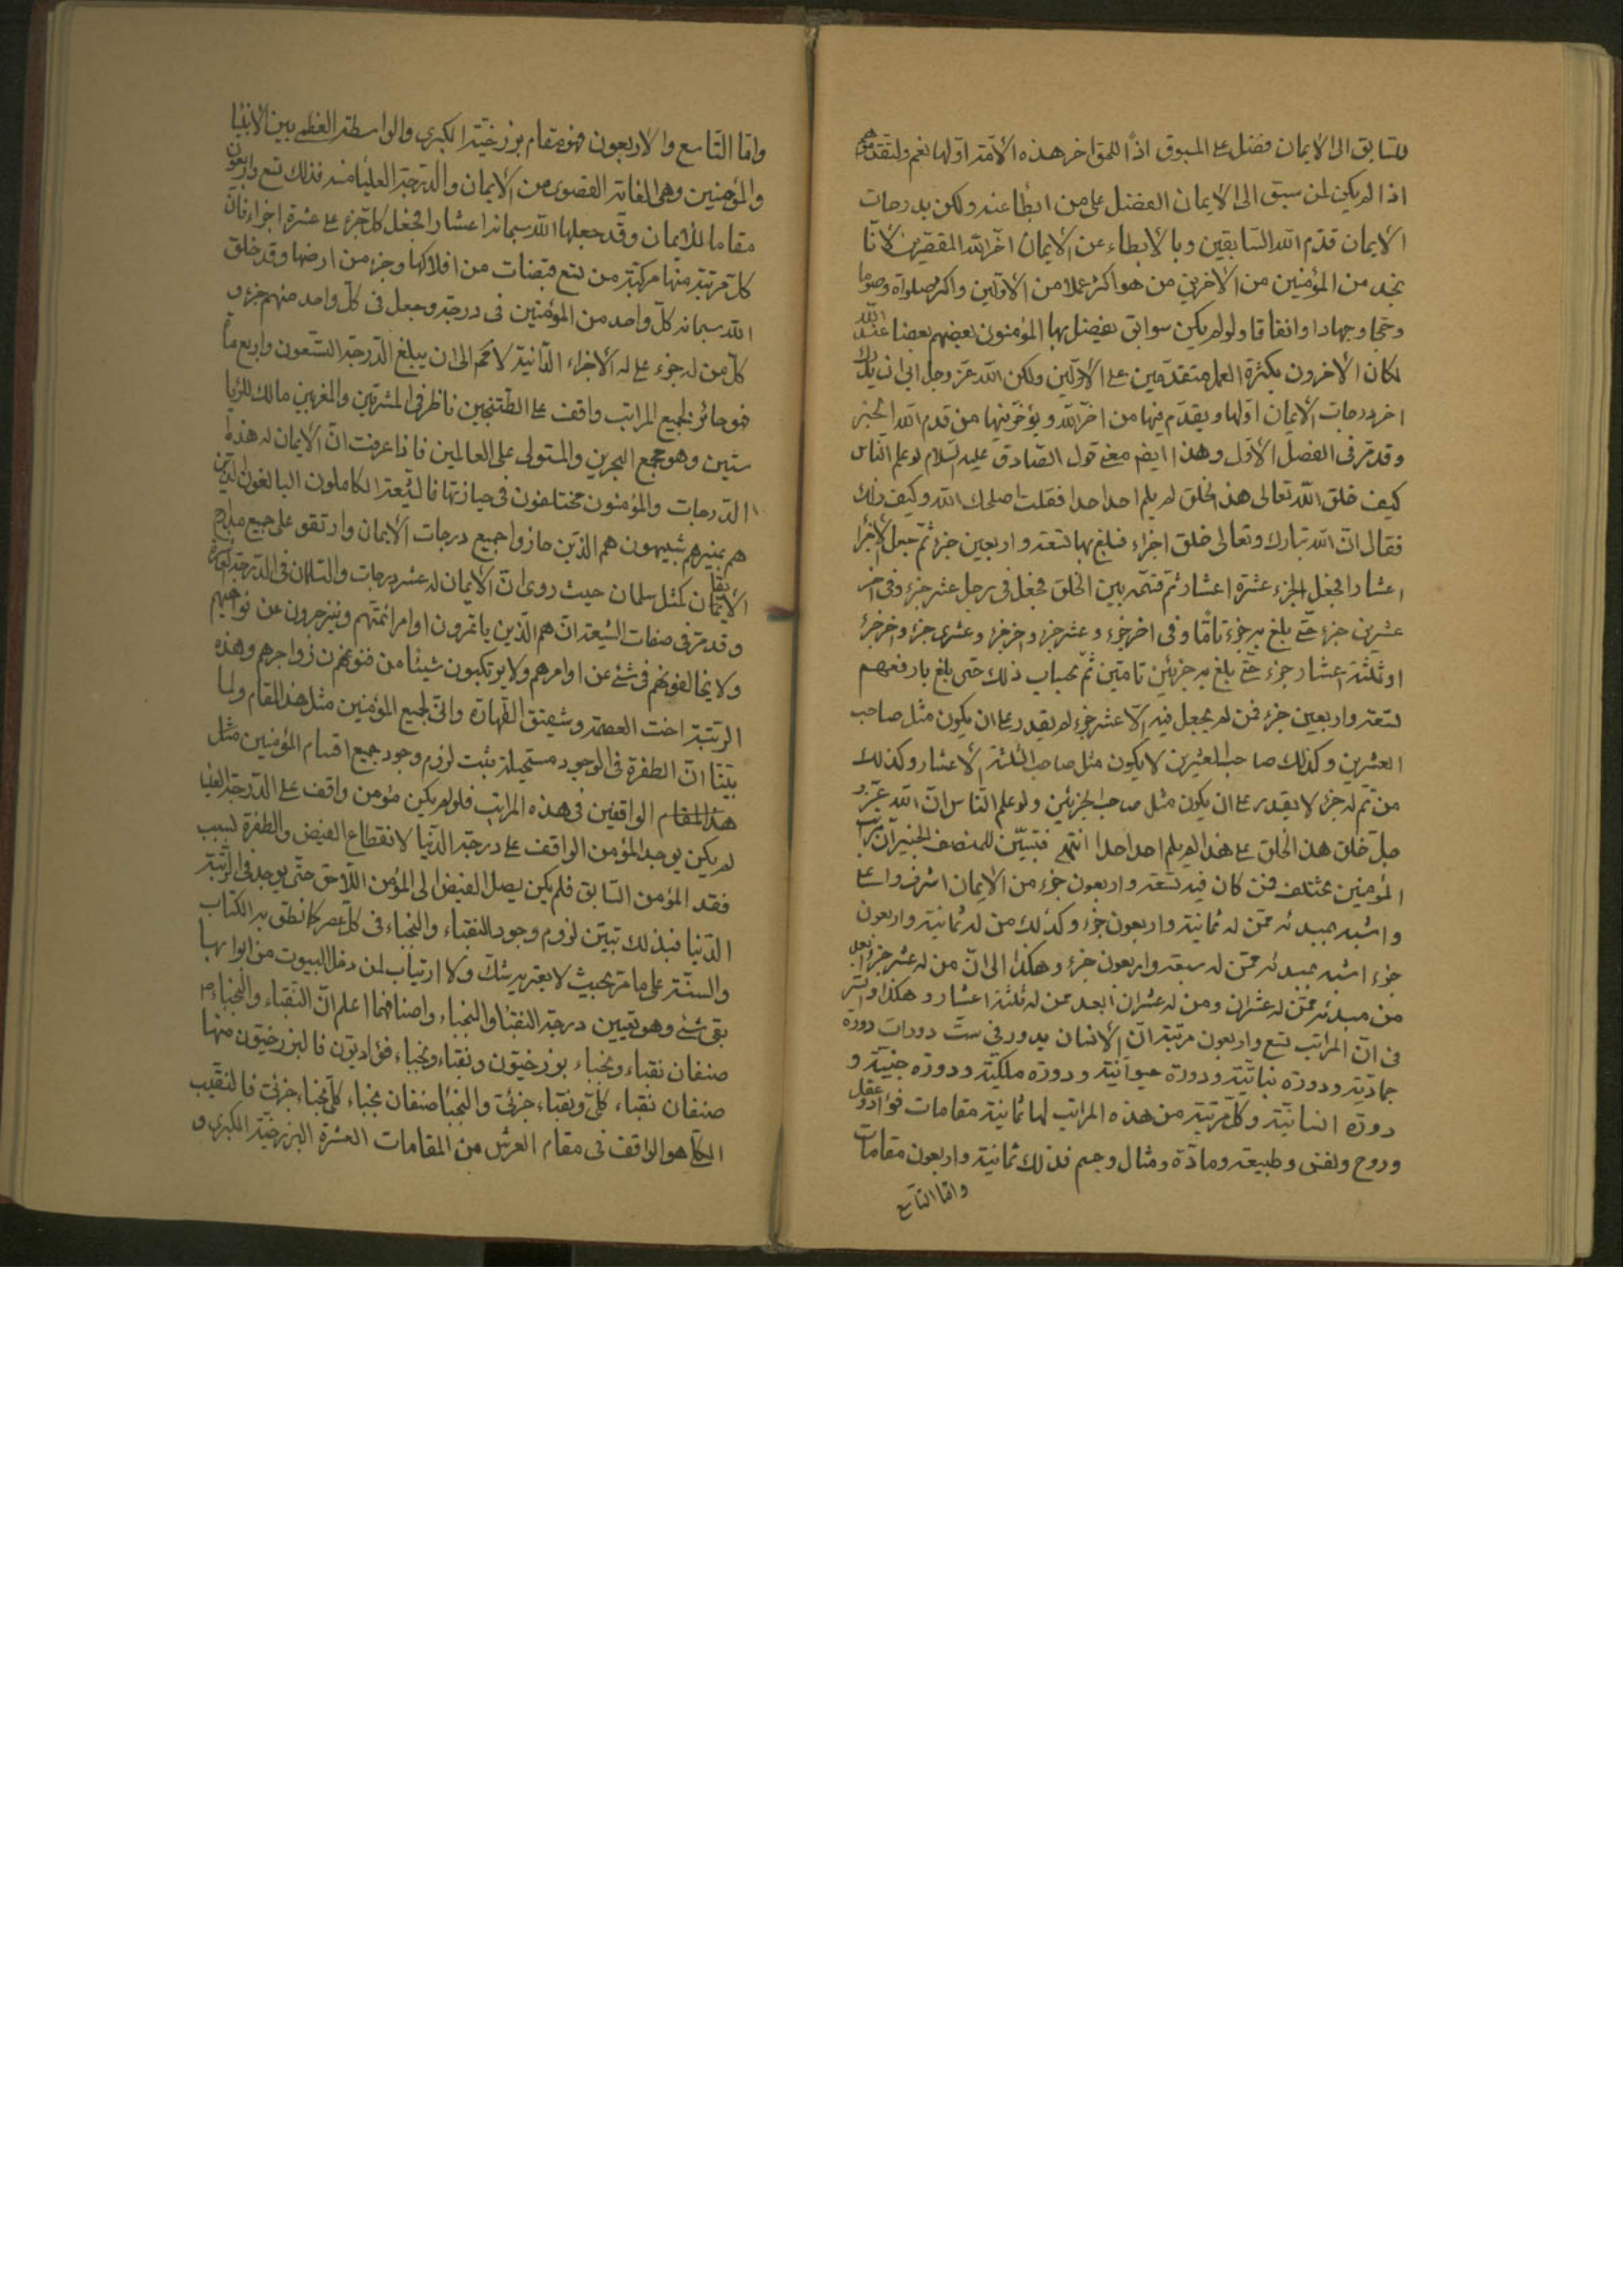 للسّابق الى الايمان فضل على المسبوق اذاً للحق اخر هذه الامّة اوّلها نعم ولتقدّموهم
اذا لم يكن لمن سبق الى الايمان الفضل على من ابطأ عنه ولكن بدرجات
الايمان قدّم الله السّابقين وبالابطاء عن الايمان اخّر الله المقصّرين لانّا
نجد من المؤمنين من الاخرين من هو اكثر عملا من الاوّلين واكثرهم صلواة وصوما
وحجّا وجهادا وانفاقا ولو لم يكن سوابق يفضل بها المؤمنون بعضهم بعضا عند الله
لكان الاخرون بكثرة العمل متقدّمين على الاوّلين ولكن الله عزّ وجل ابى ان يدرك
اخر درجات الايمان اوّلها ويقدّم فيها من اخّر الله ويؤخّر فيها من قدم الله الخبر
وقد مرّ فى الفصل الاوّل وهذا ايضم معنى قول الصّادق عليه السّلام لو علم النّاس
كيف خلق الله تعالى هذا الخلق لم يلم احد احدا فقلت اصلحك الله وكيف ذلك
فقال انّ الله تبارك وتعالى خلق اجزاء فبلغ بها تسعة واربعين جزء ثمّ جعل الاجزاء
اعشارا فجعل الجزء عشرة اعشار ثمّ قسّمه بين الخلق فجعل فى رجل عشر جزء وفى اخر
عشرين جزء حتّى بلغ به جزء تامّا وفى اخر جزء وعشر جزء واخر جزء وعشرى جزء واخر جزء
او ثلثة اعشار جزء حتّى بلغ به جزئين تامّين ثمّ بحساب ذلك حتى بلغ بارفعهم
تسعة واربعين جزء فمن لم يجعل فيه الّا عشر جزء لم يقدر على ان يكون مثل صاحب
العشرين وكذلك صاحب العشرين لا يكون مثل صاحب الثلثة الاعشار وكذلك
من تمّ له جزء لا يقدر على ان يكون مثل صاحب الجزئين ولو علم النّاس انّ الله عزّ و
جلّ خلق هذا الخلق على هذا لم يلم احد احدا انتهى فتبيّن للمنصف الخبير انّ مراتب
المؤمنين مختلفة فمن كان فيه تسعة واربعون جزء من الايمان اشرف واعلى
واشبه بمبدئه ممّن له ثمانية واربعون جزء وكذلك من له ثمانية واربعون
جزء اشبه بمبدئه ممّن له سبعة واربعون جزء وهكذا الى انّ من له عشر جزء ابعد
من مبدئه ممّن له عشران ومن له عشران ابعد ممن له ثلثة اعشار وهكذا والسّر
فى انّ المراتب تسع واربعون مرتبة انّ الانسان يدور فى ستّ دورات دورة
جماديّة ودورة نباتيّة ودورة حيوانيّة ودورة ملكيّة ودورة جنيّة و
دورة انسانيّة وكلّ مرتبة من هذه المراتب لها ثمانية مقامات فؤاد وعقل
وروح ونفس وطبيعة ومادّة ومثال وجسم فذلك ثمانية واربعون مقامات
وامّا التّاسع
وامّا التّاسع والاربعون فهو مقام برزخيّة الكبرى والواسطة العظمى بين الانبيا
والمؤمنين وهى الغاية القصوى من الايمان والدّرجة العليا منه فذلك تسع واربعون
مقاما للايمان وقد جعلها الله سبحانه اعشارا فجعل كلّ جزء على عشرة اجزاء فانّ
كلّ مرتبة منها مركّبة من تسع قبضات من افلاكها وجزء من ارضها وقد خلق
الله سبحانه كلّ واحد من المؤمنين فى درجة وجعل فى كلّ واحد منهم جزء و
كلّ من له جزء على له الاجزاء الدّانية لا محم الى ان يبلغ الدّرجة التّسعون واربع ماة
فهو حائز لجميع المراتب واقف على الطّتنجين ناظر فى المشرقين والمغربين مالك للرّيا
ستين وهو مجمع البحرين والمتولى على العالمين فاذا عرفت انّ الايمان له هذه
الدّرجات والمؤمنون مختلفون فى حيازتها فالشّيعة الكاملون البالغون الذين
هم بمنيرهم شبيهون هم الذّين حازوا جميع درجات الايمان وارتقوا على جميع مدارج
الايقان كمثل سلمان حيث روى انّ الايمان له عشر درجات والسّلمان فى الدّرجة العاشرة
وقد مرّ فى صفات الشّيعة انّ هم الّذين ياتمرون اوامر ائمّتهم وينزجرون عن نواهيهم
ولا يخالفونهم فى شئ عن اوامرهم ولا يرتكبون شيئا من زواجرهم وهذه
الرتبة اخت العصمة وشقيق الطّهارة وانّى لجميع المؤمنين مثل هذا المقام ولما
بيّنا انّ الطفرة فى الوجود مستحيلة يثبت لزوم وجود جميع اقسام المؤمنين مثل
هذا المقام الواقفين فى هذه المراتب فلو لم يكن مؤمن واقف على الدّرجة العليا
لم يكن يوجد المؤمن الواقف على درجة الدّنيا لانقطاع الفيض والطفرة لسبب
فقد المؤمن السّابق فلم يكن يصل الفيض الى المؤمن اللّاحق حتّى يوجد فى الرّتبة
الدّنيا فبذلك تبيّن لزوم وجود النقباء والنّجباء فى كلّ عصر كما نطق به الكتاب
والسنّة على ما مرّ بحيث لا يعتريه شكّ ولا ارتياب لمن دخل البيوت من ابوابها
بقى شئ وهو تعيين درجة النقبا والنّجباء واصنافهما اعلم انّ النّقباء والنّجباء
صنفان نقباء ونجباء برزخيّون ونقباء ونجباء فؤاديّون فالبرزخيّون منها
صنفان نقباء كلّى ونقباء جزئى والنّجبا صنفان نجباء كلّى نجباء جزئى فالنقيب
الكلّى هو الواقف فى مقام العرش من المقامات العشرة البرزخيّة الكبرى و